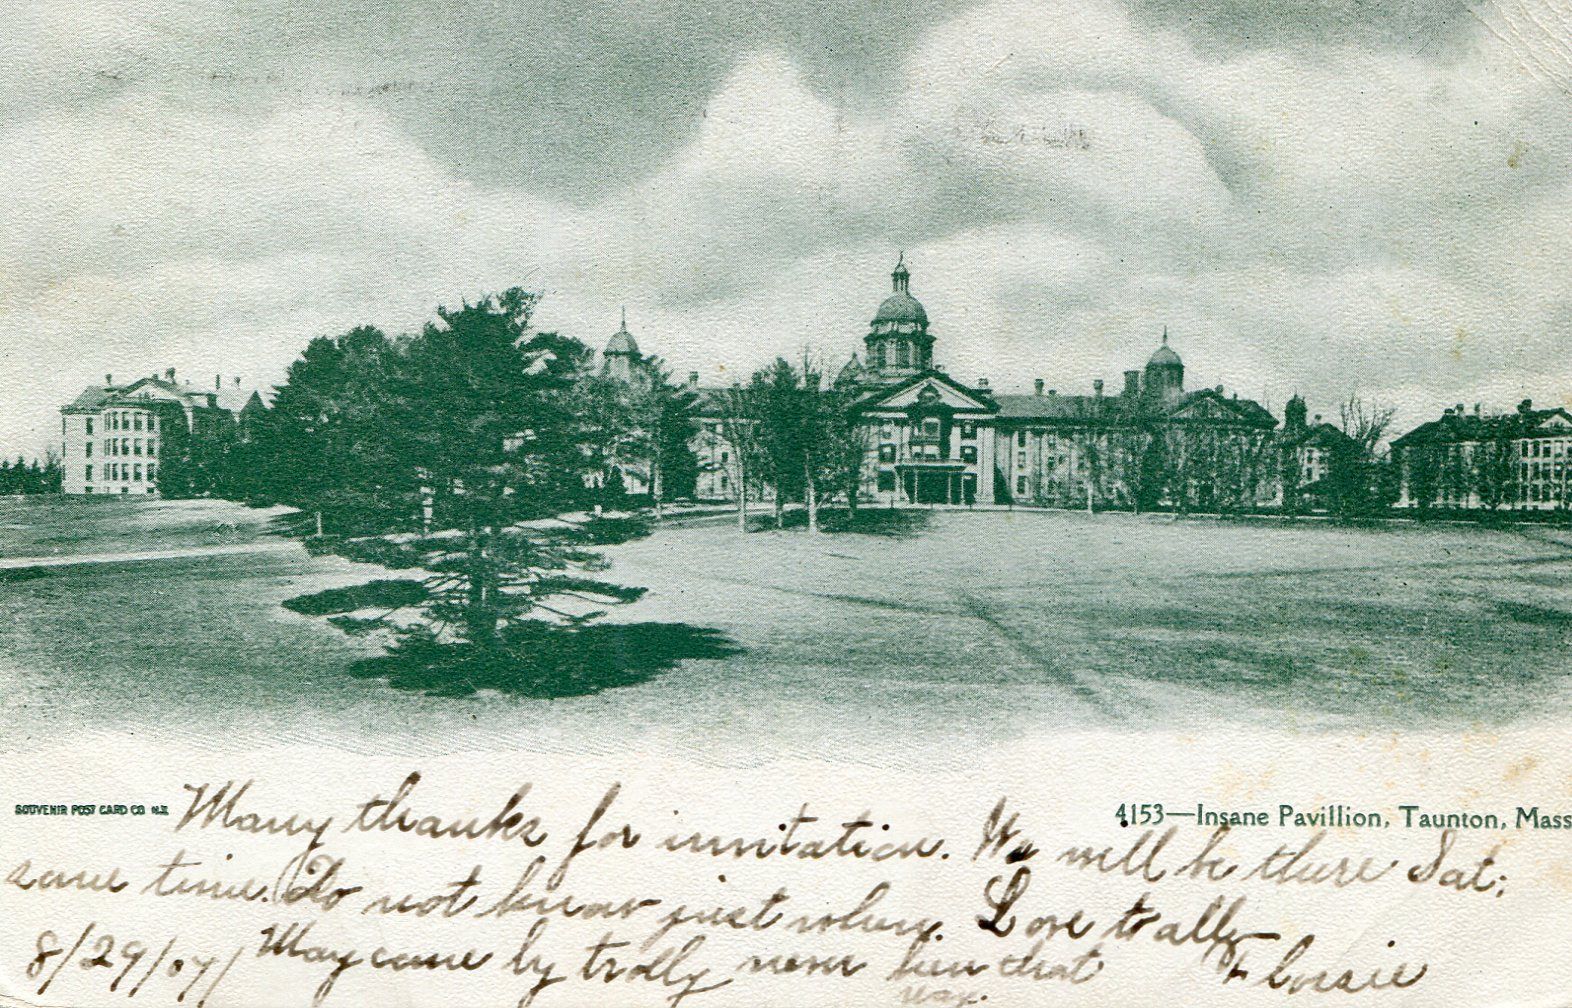 SOUVENIR POST CARD CO N.Y.
4153—Insane Pavillion, Taunton, Mass
Many thanks for invitation. We will be there Sat;
some time. Do not know just when. Love to all
8/29/07/ May come by trolly never been that Flossie
way.